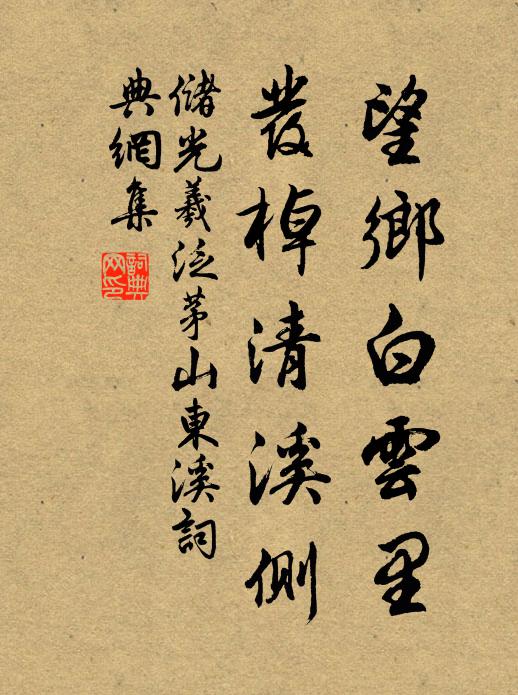 望鄉白雲里
發棹清溪側
儲光羲泛茅山東溪詞
典網集
詞典網印